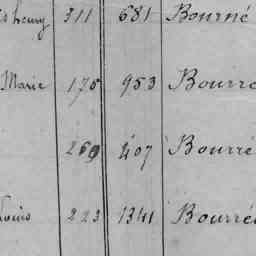 henry 311 681 Bourné
Marie 175 953 Bourré
269 407 Bourré
Louis 223 1341 Bourré